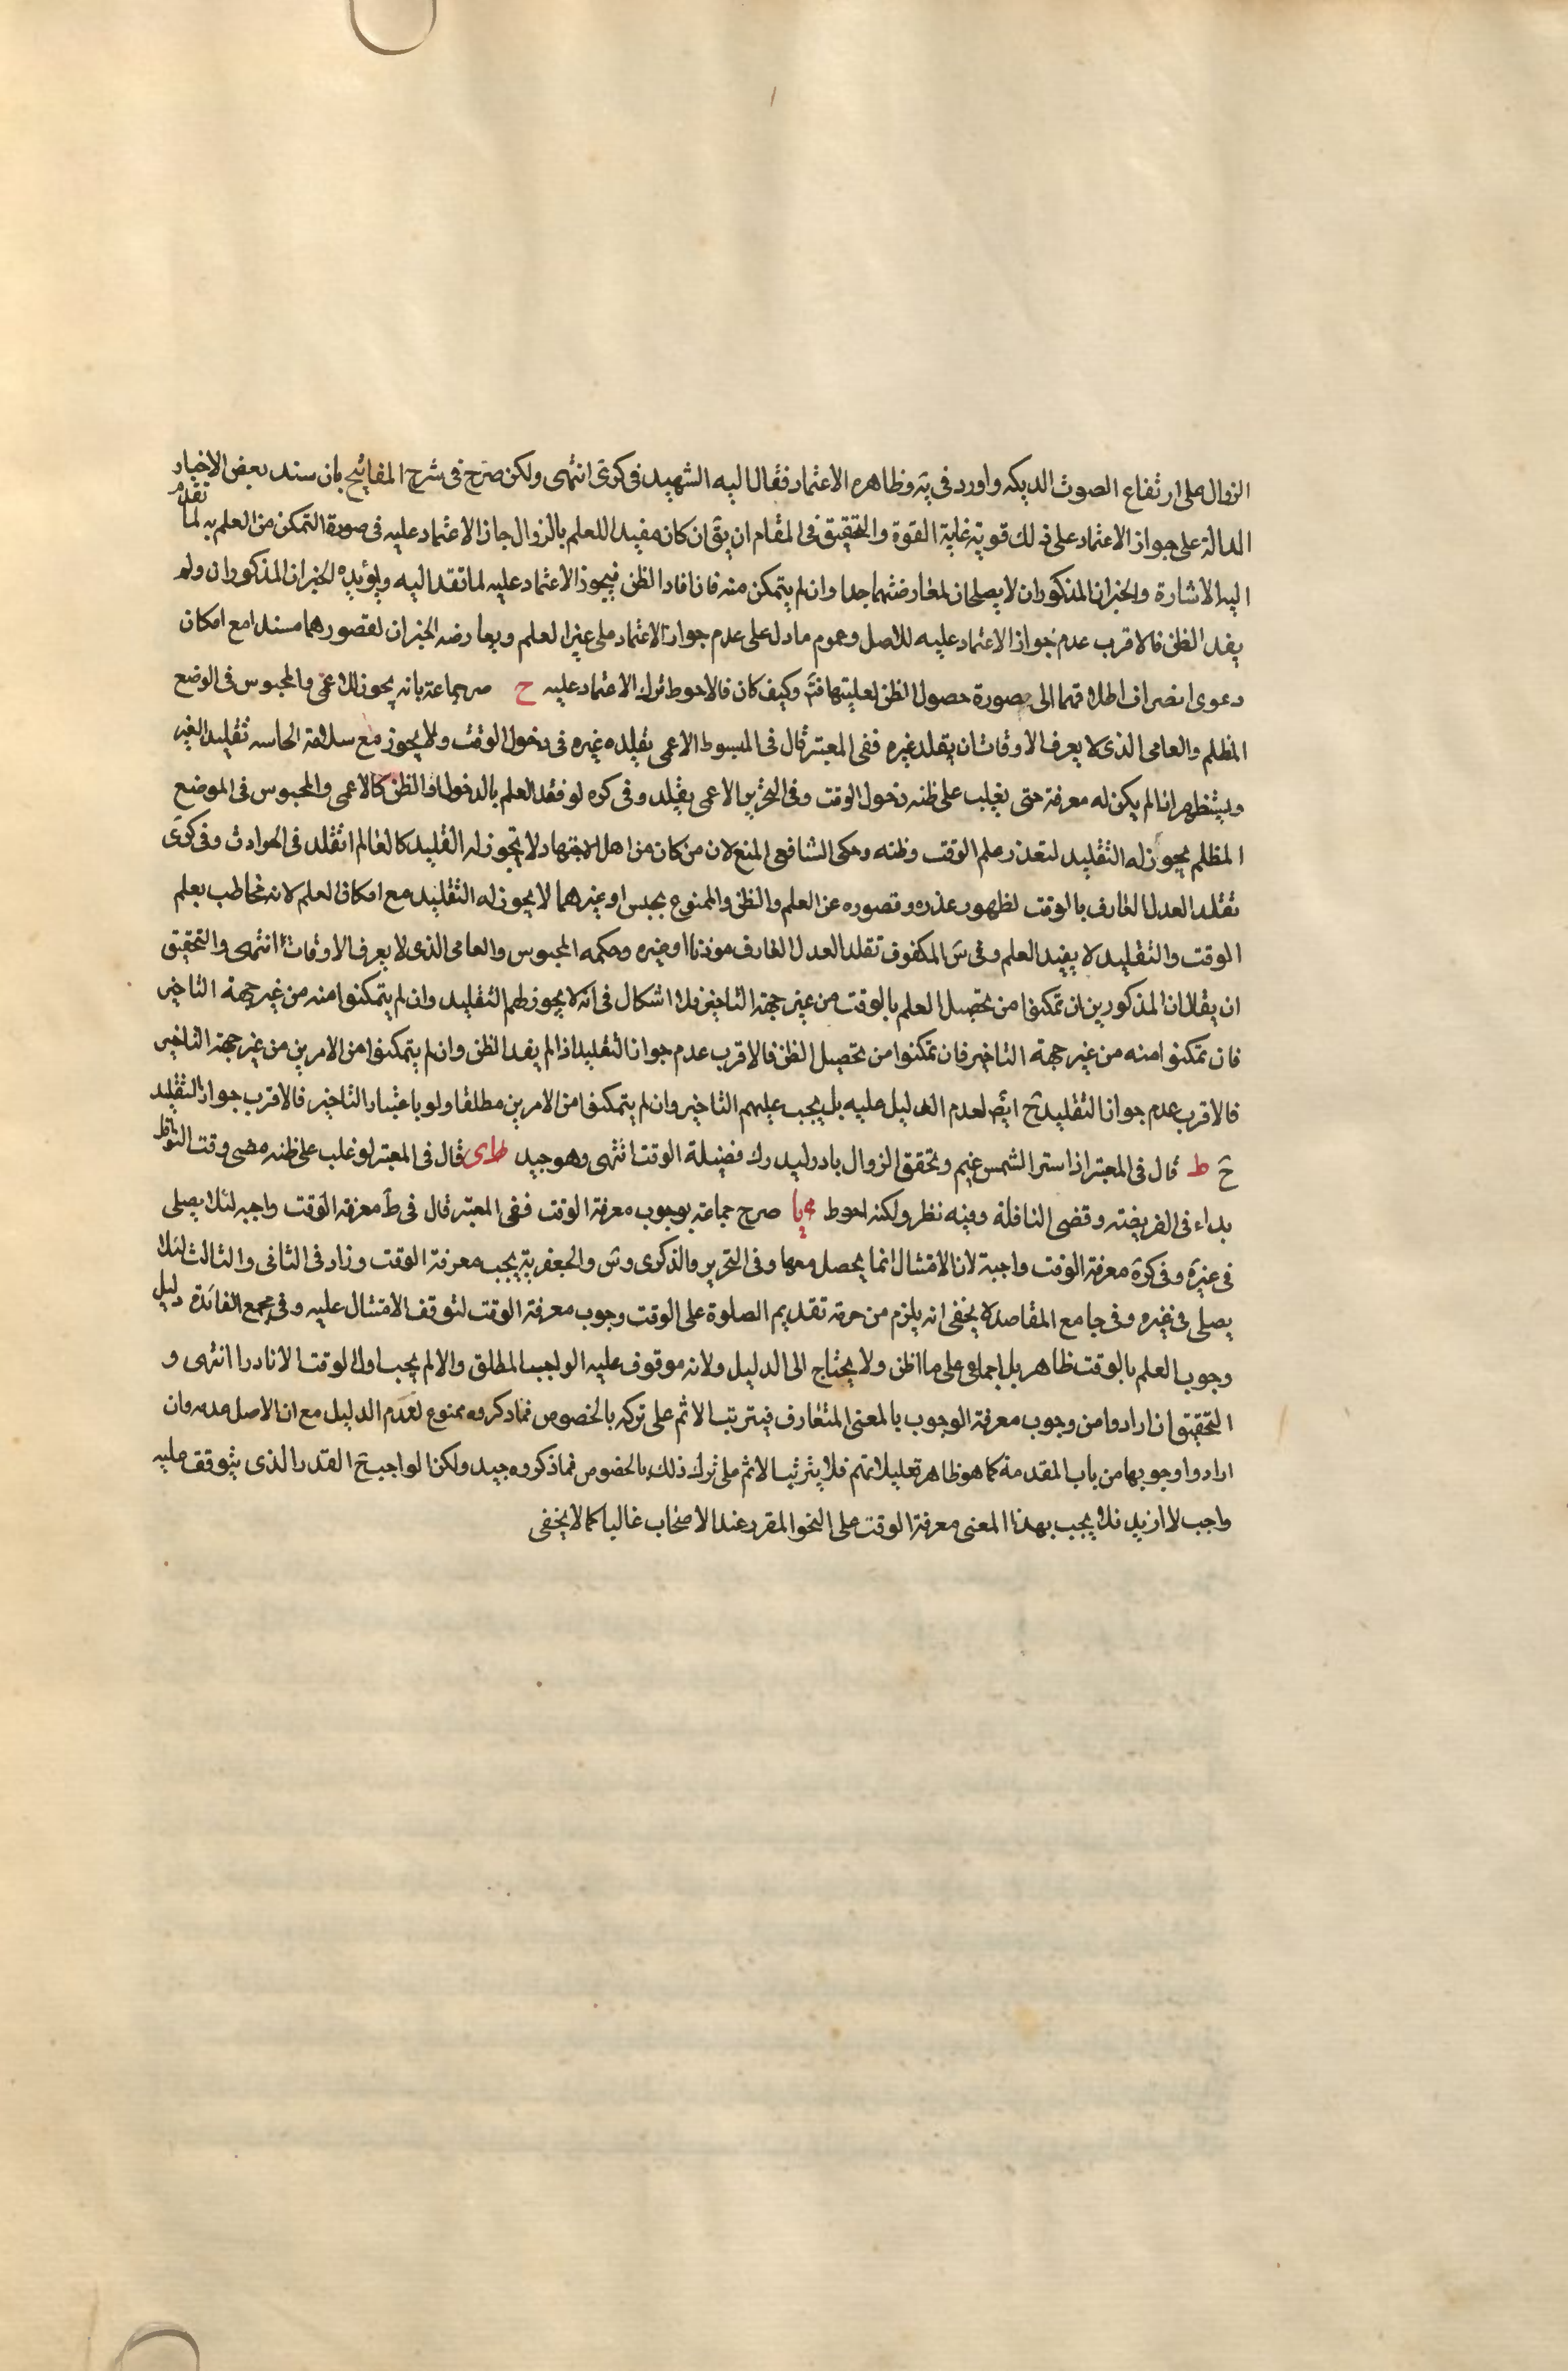 الزوال على ارتفاع الصوت الديكه واورد فى يه وظاهره الاعتماد فقال اليه الشهيد فى كرى انتهى ولكن صرح فى شرح المفاتيح بان سند بعض الاخبار
الدالة على جواز الاعتماد على ذلك قوية غاية القوة والتحقيق فى المقام ان يق ان كان مفيدا للعلم بالزوال جاز الاعتماد عليه فى صورة التمكن من العلم به لما تقدم
اليه الاشارة والخبران المذكوران لا يصلحان لمعارضتهما جدا وان لم يتمكن منه فان افاد الظن فيجوز الاعتماد عليه لما تقد اليه ويؤيده الخبران المذكوران ولو
يفد الظن فالاقرب عدم جواز الاعتماد عليه للاصل وعموم ما دل على عدم جواز الاعتماد على غير العلم ويعارضه الخبران لقصورهما سندا مع امكان
دعوى انصراف اطلاقهما الى صورة حصول الظن لغلبتها فت وكيف كان فالاحوط ترك الاعتماد عليه ح صر جماعة بانه يجوز للاعمى والمحبوس فى الوضع
المظلم والعامى الذى لا يعرف الاوقات ان يقلد غيره ففى المعتبر قال فى المبسوط الاعمى يقلده غيره فى دخول الوقت ولا يجوز مع سلامة الحاسه تقليد الغير
ويستظهر اذا لم يكن له معرفة حتى يغلب على ظنه دخول الوقت وفى التحرير الاعمى يقلد وفى كره لو فقد العلم بالدخول والظن كالاعمى والمحبوس فى الموضع
المظلم يجوز له التقليد لتعذر علم الوقت وظنه وحكى الشافعى المنع لان من كان من اهل الاجتهاد لا يجوز له القليد كالعالم اتقلد فى الحوادث وفى كرى
تقلد العدل العارف بالوقت لظهور عذره وقصوره عن العلم والظن والممنوع بحبس او غيرهما لا يجوز له التقليد مع امكان العلم لانه مخاطب بعلم
الوقت والتقليد لا يفيد العلم وفى س المكفوف تقلد العدل العارف موذنا او غيره وحكمه المحبوس والعامى الذى لا يعرف الاوقات انتهى والتحقيق
ان يقال ان المذكورين ان تمكنوا من تحصيل العلم بالوقت من غير جهة التاخير فلا اشكال فى انه لا يجوز لهم التقليد وان لم يتمكنوا منه من غير جهة التاخير
فان تمكنوا منه من غير جهة التاخير فان تمكنوا من تحصيل الظن فالاقرب عدم جواز التقليد اذا لم يفد الظن وان لم يتمكنوا من الامرين من غير جهة التاخير
فالاقرب عدم جواز التقليد ح ايض لعدم الدليل عليه بل يجب عليهم التاخير وان لم يتمكنوا من الامرين مطلقا ولو باعتبار التاخير فالاقرب جواز التقليد
ح ط قال فى المعتبر اذا استر الشمس غيم وتحقق الزوال بادر ليدرك فضيلة الوقت انتهى وهو جيد ى قال فى المعتبر لو غلب على ظنه مضى وقت النوافل
بداء فى الفريضة وقضى النافلة وفيه نظر ولكنه احوط يا صرح جماعة بوجوب معرفة الوقت ففى المعتبر قال فى ط معرفة الوقت واجبه لئلا يصلى
فى غيره وفى كرة معرفة الوقت واجبة لان الامتثال انما يحصل معها وفى التحرير والذكرى وس والجعفرية يجب معرفة الوقت وزاد فى الثانى والثالث لئلا
يصلى فى غيره وفى جامع المقاصد لا يخفى انه يلزم من حرمة تقديم الصلوة على الوقت وجوب معرفة الوقت لتوقف الامتثال عليه وفى مجمع الفائدة دليل
وجوب العلم بالوقت ظاهر بل اجماعى على ما اظن ولا يحتاج الى الدليل ولانه موقوف عليه الواجب المطلق والا لم يجب اول الوقت الا نادرا انتهى و
التحقيق ان ارادوا من وجوب معرفة الوجوب بالمعنى المتعارف فيترتب الاثم على تركه بالخصوص فما ذكروه ممنوع لعدم الدليل مع ان الاصل عدمه وان
ارادوا وجوبها من باب المقدمة كما هو ظاهر تعليلاتهم فلا يترتب الاثم على ترك ذلك بالخصوص فما ذكروه جيد ولكن الواجب ح القدر الذى يتوقف عليه
واجب لا ازيد فلا يجب بهذا المعنى معرفة الوقت على النحو المقرر عند الاصحاب غالبا كما لا يخفى